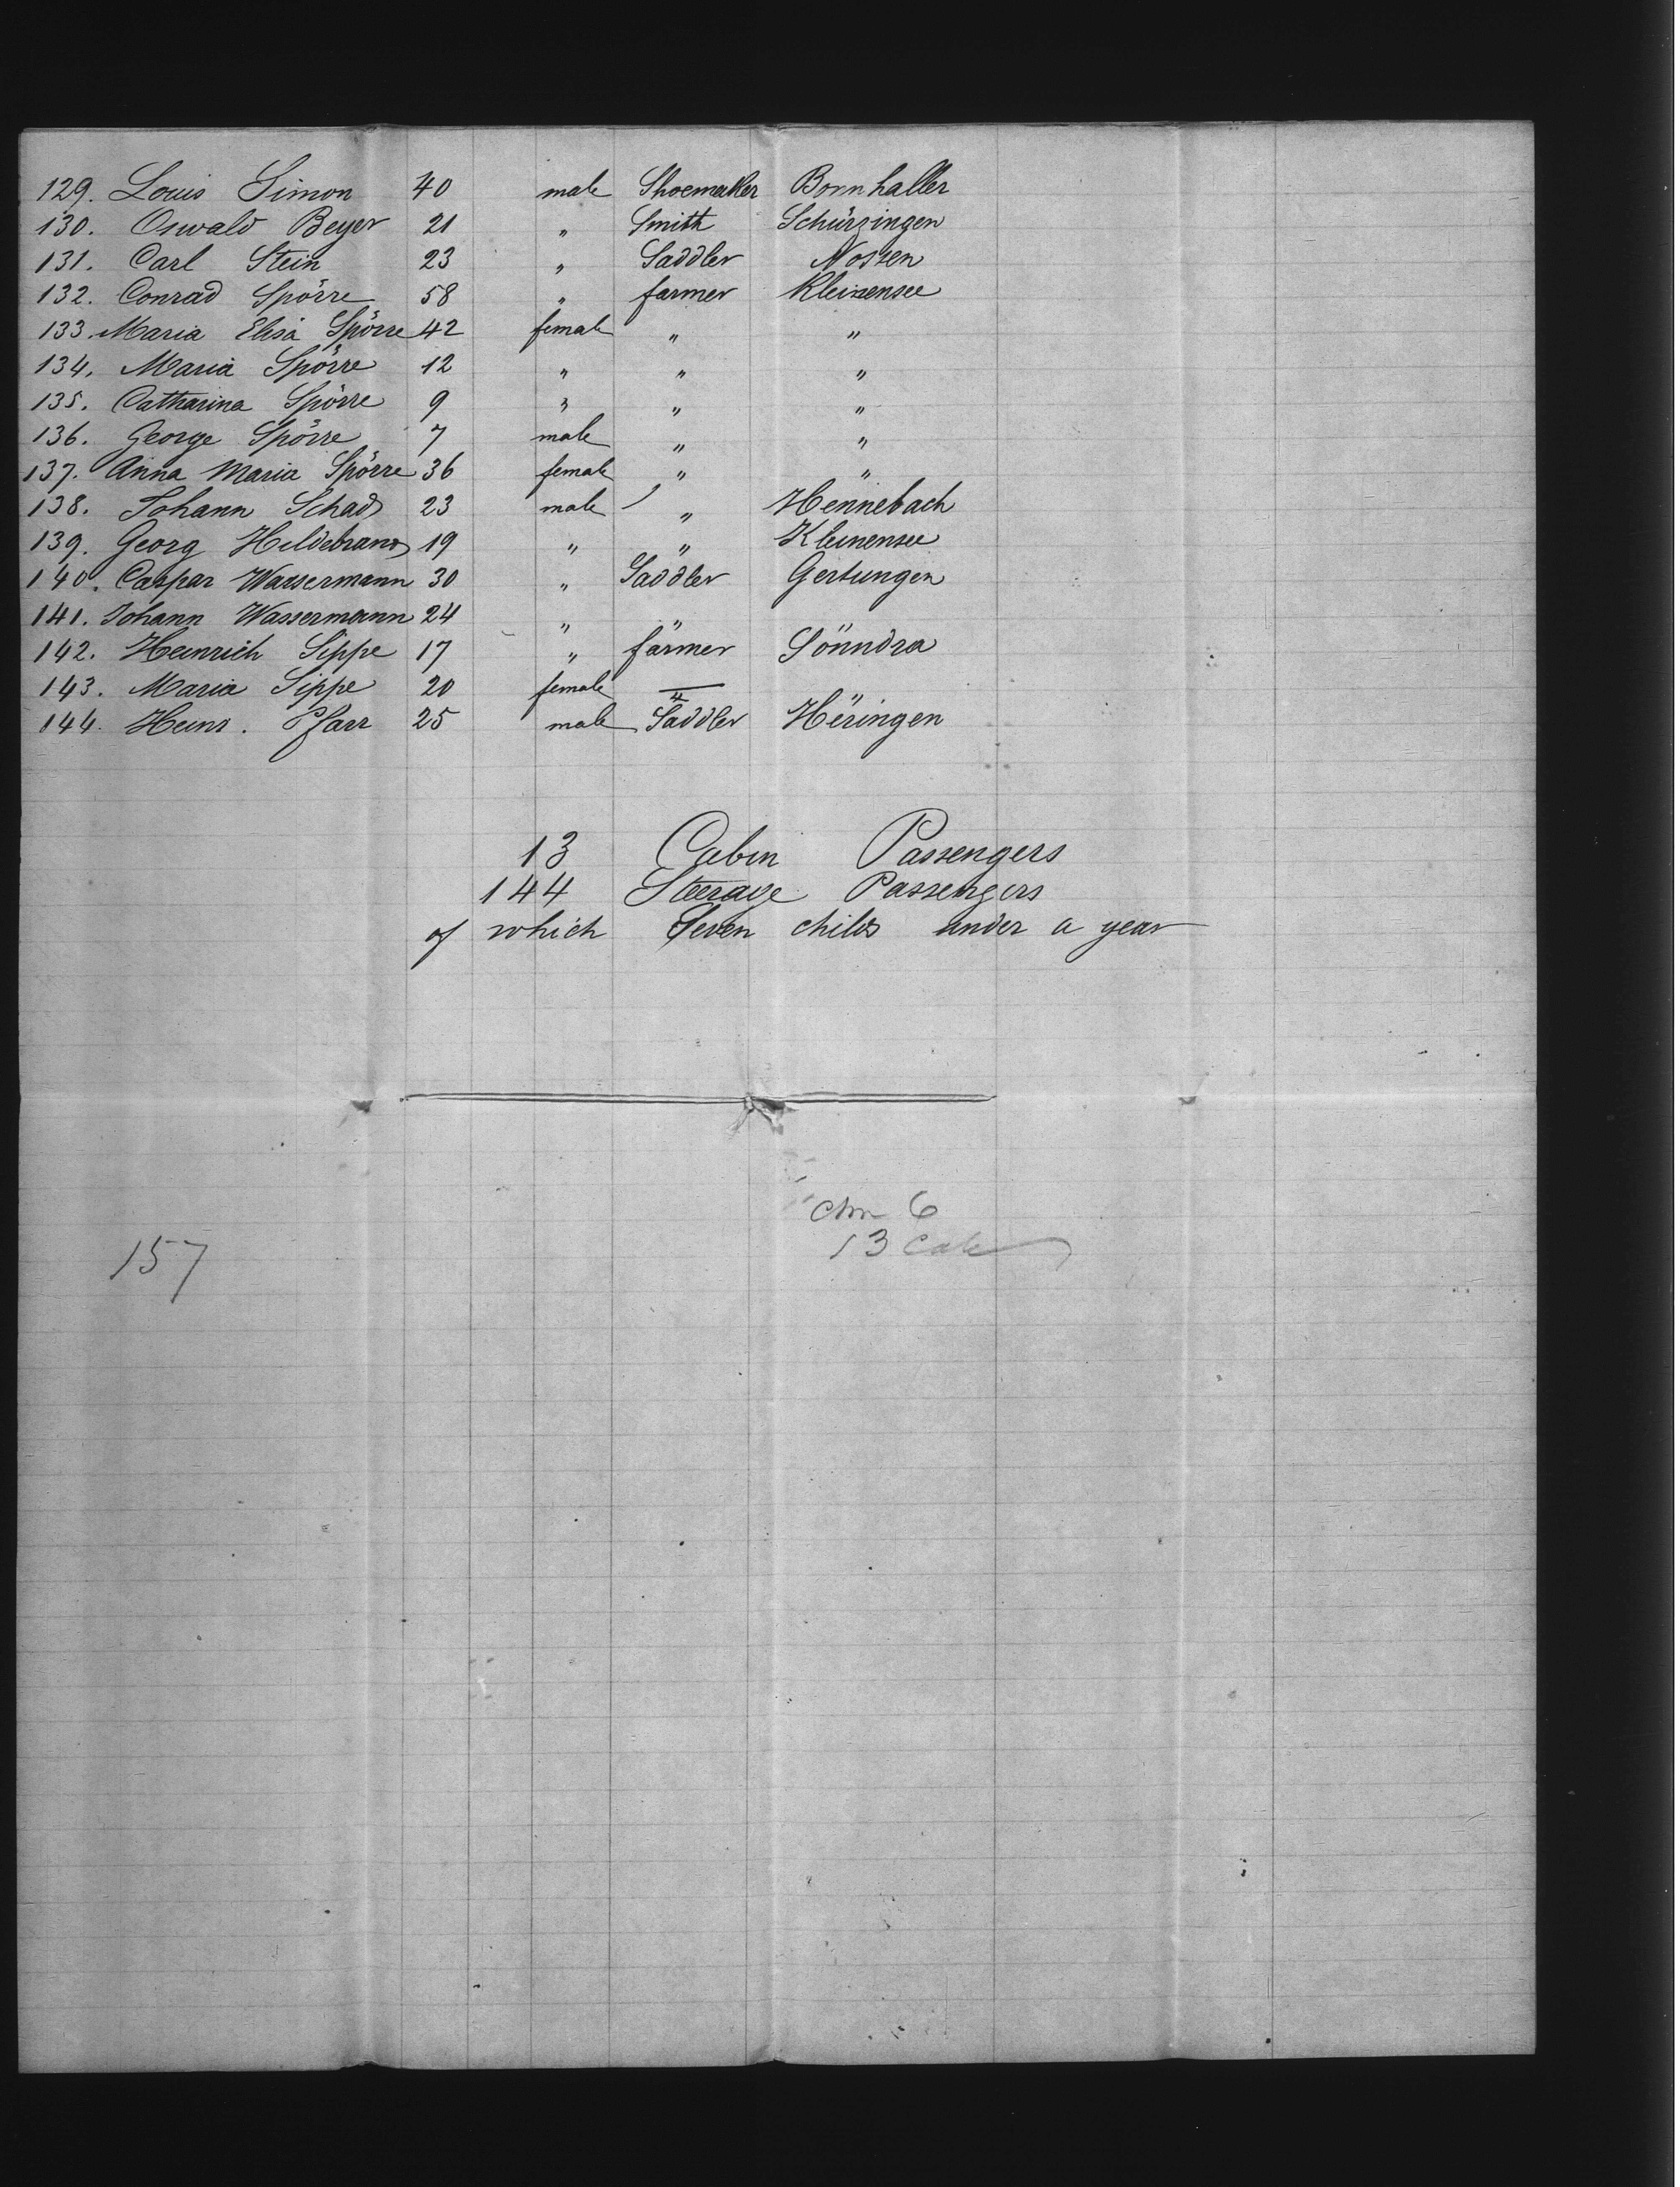 129. Louis Simon 40 male Shoemaker Bornhaller
130. Oswald Beyer 21 " Smith Schürzingen
131. Carl Stein 23 " Saddler Nossen
132. Conrad Spörre 58 " farmer Kleinensee
133. Maria Elisa Spörre 42 female " "
134. Maria Spörre 12 " " "
135. Catharina Spörre 9 " " "
136. George Spörre 7 male " "
137. Anna Maria Spörre 36 female " "
138. Johann Schad 23 male " Hennebach
139. Georg Hildebrand 19 " " Kleinensee
140. Caspar Wassermann 30 " Saddler Gertungen
141. Johann Wassermann 24 " " "
142. Heinrich Sippe 17 " farmer Sönndra
143. Maria Sippe 20 female — "
144. Heinr. Pfarr 25 male Saddler Heringen
13 Cabin Passengers
144 Steerage Passengers
of which Seven childs under a year
6
13 Cab
157